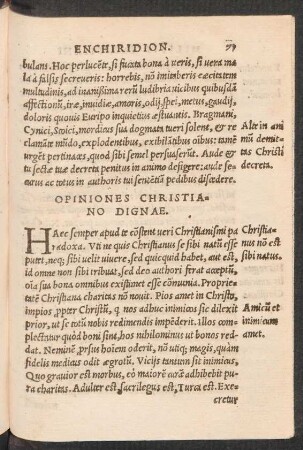 ENCHIRIDION. 71
bulans. Hoc perlucẽt, si fuxta bona à veris, si vera ma
la à falsis secreueris: horrebis, nõ imitaberis cæcitatem
multitudinis, ad inanissima rerũ ludibria vicibus quibusdã
affectionũ, iræ, inuidiæ, amoris, odij, spei, metus, gaudij,
doloris quouis Euripo inquietius æstuantis. Bragmani,
Cynici, Stoici, mordicus sua dogmata tueri solent, & re
clamãte mũdo, explodentibus, exibilãtibus oĩbus: tamẽ
urgẽt pertinaces, quod sibi semel persuaserũt. Aude &
tu sectæ tuæ decreta penitus in animo desigere: aude se-
curus ac totus in authoris tui sentẽtiã pedibus discedere.
Alte in ani
mũ demit-
tas Christi
decreta.
OPINIONES CHRISTIA-
NO DIGNAE.
HAec semper apud te cõstent veri Christianismi pa
radoxa. Vti ne quis Christianus se sibi natũ esse
putet, neq; sibi uelit uiuere, sed quicquid habet, aut est,
id omne non sibi tribuat, sed deo authori ferat acceptũ,
oĩa sua bona omnibus existimet esse cõmunia. Proprie-
tatẽ Christiana charitas nõ nouit. Pios amet in Christo,
impios ꝓpter Christũ, q nos adhuc inimicos sic dilexit
prior, ut se totũ nobis redimendis impẽderit. Illos com-
plectatur quòd boni sint, hos nihilominus ut bonos red-
dat. Neminẽ ꝓrsus hoĩem oderit, nõ utiq; magis, quàm
fidelis medicus odit ægrotũ. Vicijs tantum sit inimicus.
Quo grauior est morbus, eò maiorẽ curã adhibebit pu
ra charitas. Adulter est, sacrilegus est, Turca est. Exe-
cretur
Christia-
nus nõ est
sibi natus.
Amicũ et
inimicum
amet.